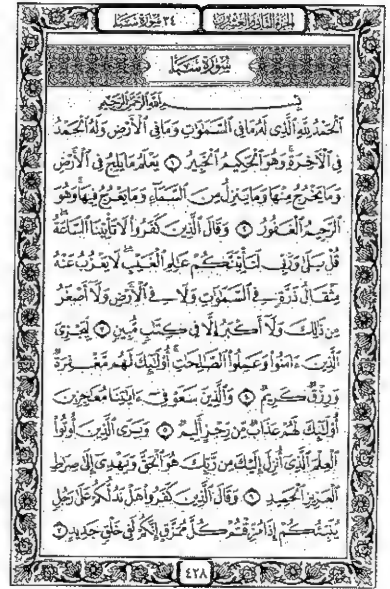 الجزء الثاني والعشرون
٣٤ سورة سبإ
سُورَةُ سَبَإٍ
بِسْمِ اللَّهِ الرَّحْمَٰنِ الرَّحِيمِ
ٱلْحَمْدُ لِلَّهِ ٱلَّذِى لَهُۥ مَا فِى ٱلسَّمَٰوَٰتِ وَمَا فِى ٱلْأَرْضِ وَلَهُ ٱلْحَمْدُ
فِى ٱلْءَاخِرَةِ ۚ وَهُوَ ٱلْحَكِيمُ ٱلْخَبِيرُ ١ يَعْلَمُ مَا يَلِجُ فِى ٱلْأَرْضِ
وَمَا يَخْرُجُ مِنْهَا وَمَا يَنزِلُ مِنَ ٱلسَّمَآءِ وَمَا يَعْرُجُ فِيهَا ۚ وَهُوَ
ٱلرَّحِيمُ ٱلْغَفُورُ ٢ وَقَالَ ٱلَّذِينَ كَفَرُوا۟ لَا تَأْتِينَا ٱلسَّاعَةُ ۖ
قُلْ بَلَىٰ وَرَبِّى لَتَأْتِيَنَّكُمْ عَٰلِمِ ٱلْغَيْبِ ۖ لَا يَعْزُبُ عَنْهُ
مِثْقَالُ ذَرَّةٍ فِى ٱلسَّمَٰوَٰتِ وَلَا فِى ٱلْأَرْضِ وَلَآ أَصْغَرُ
مِن ذَٰلِكَ وَلَآ أَكْبَرُ إِلَّا فِى كِتَٰبٍ مُّبِينٍ ٣ لِّيَجْزِىَ
ٱلَّذِينَ ءَامَنُوا۟ وَعَمِلُوا۟ ٱلصَّٰلِحَٰتِ ۚ أُو۟لَٰٓئِكَ لَهُم مَّغْفِرَةٌ
وَرِزْقٌ كَرِيمٌ ٤ وَٱلَّذِينَ سَعَوْ فِىٓ ءَايَٰتِنَا مُعَٰجِزِينَ
أُو۟لَٰٓئِكَ لَهُمْ عَذَابٌ مِّن رِّجْزٍ أَلِيمٌ ٥ وَيَرَى ٱلَّذِينَ أُوتُوا۟
ٱلْعِلْمَ ٱلَّذِىٓ أُنزِلَ إِلَيْكَ مِن رَّبِّكَ هُوَ ٱلْحَقَّ وَيَهْدِىٓ إِلَىٰ صِرَٰطِ
ٱلْعَزِيزِ ٱلْحَمِيدِ ٦ وَقَالَ ٱلَّذِينَ كَفَرُوا۟ هَلْ نَدُلُّكُمْ عَلَىٰ رَجُلٍ
يُنَبِّئُكُمْ إِذَا مُزِّقْتُمْ كُلَّ مُمَزَّقٍ إِنَّكُمْ لَفِى خَلْقٍ جَدِيدٍ ٧
٤٢٨